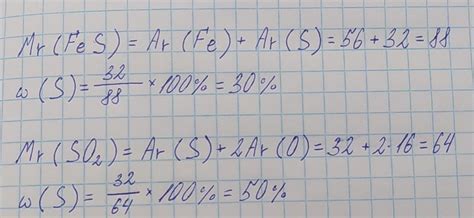 Mr (FeS) = Ar (Fe) + Ar (S) = 56 + 32 = 88
ω (S) = 32/88 × 100% = 30%
Mr (SO₂) = Ar (S) + 2Ar (O) = 32 + 2·16 = 64
ω (S) = 32/64 × 100% = 50%